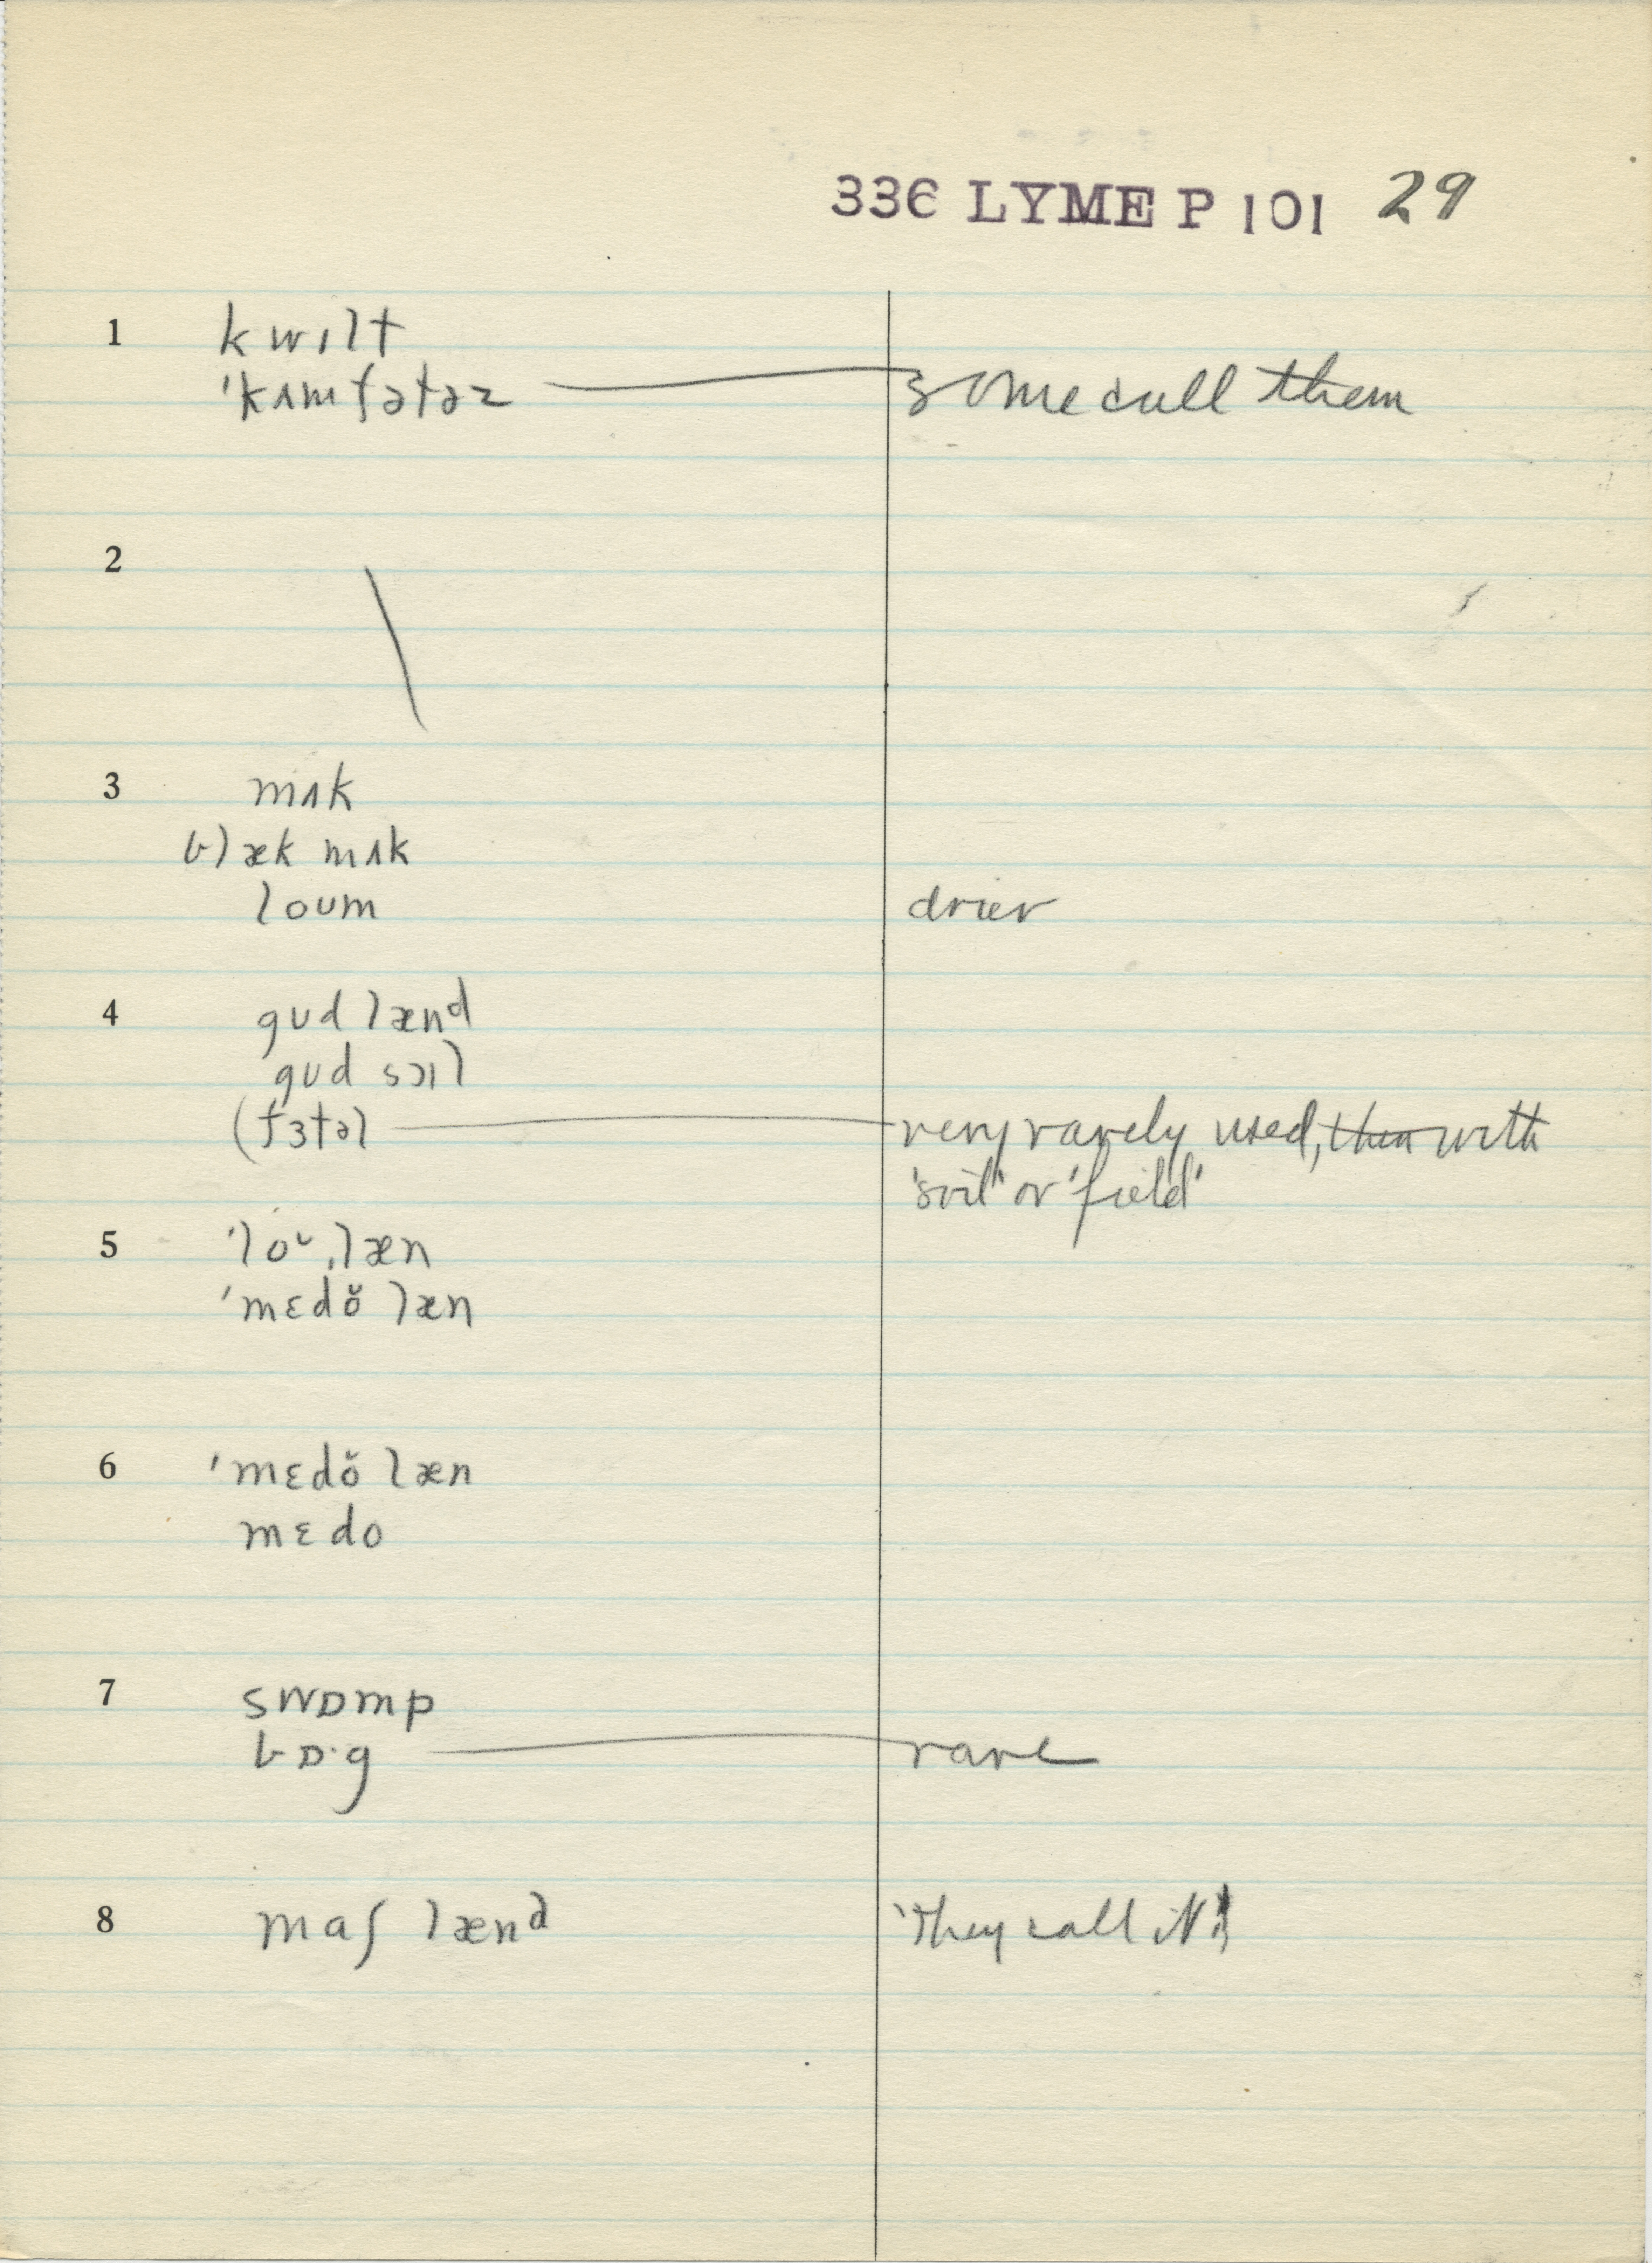 336 LYME P 101 29
1 kwɪlt
ˈkʌmfətəz some call them
2
3 mʌk
blæk mʌk
loʊm drier
4 gʊd lænᵈ
gʊd sɔɪl
(fɜtəl very rarely used, then with
'soil' or 'field'
5 ˈloᶷˌlæn
ˈmɛdŏ læn
6 ˈmɛdŏ læn
mɛdo
7 swɒmp
bɒ·g rare
8 maʃ lænᵈ 'They call it'